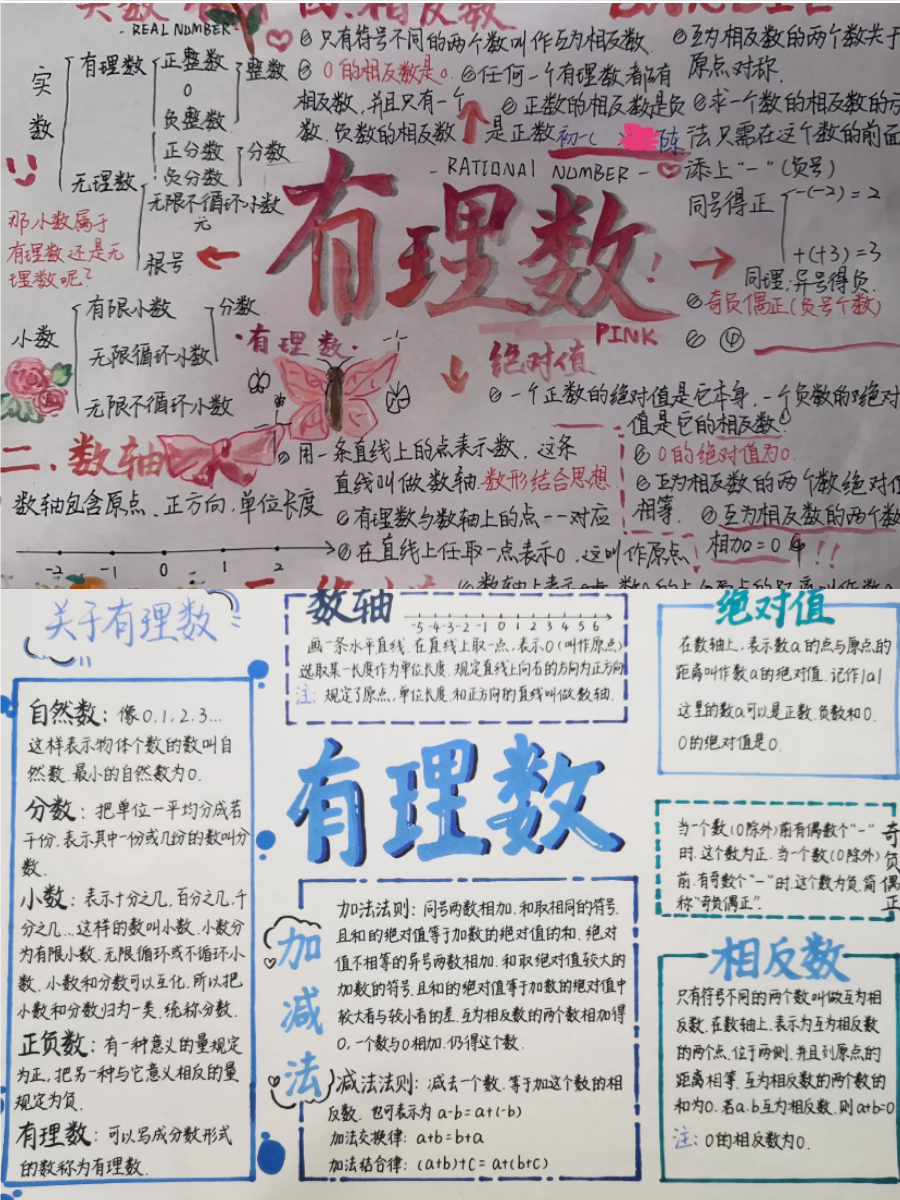 实数
相反数
- REAL NUMBER -
实数
有理数
正整数
0
负整数
整数
正分数
负分数
分数
无理数
无限不循环小数
根号
那小数属于
有理数还是无
理数呢?
小数
有限小数
无限循环小数
分数
无限不循环小数
只有符号不同的两个数叫作互为相反数.
0的相反数是0.
任何一个有理数都有
相反数,并且只有一个
正数的相反数是负
数.负数的相反数
是正数
互为相反数的两个数关于
原点对称.
求一个数的相反数的方
法只需在这个数的前面
添上"-"(负号)
初一(
陈
- RATIONAL NUMBER -
有理数!
PINK
同号得正
-(-2)=2
+(+3)=3
同理:异号得负.
奇负偶正(负号个数)
④
·有理数·
绝对值
一个正数的绝对值是它本身.一个负数的绝对
值是它的相反数
0的绝对值为0.
互为相反数的两个数绝对值
相等.
互为相反数的两个数
相加=0
!!
二.数轴
数轴包含原点、正方向,单位长度
-2 -1 0 1 2
用一条直线上的点表示数.这条
直线叫做数轴.数形结合思想
有理数与数轴上的点一一对应
在直线上任取一点表示0.这叫作原点
关于有理数
自然数:像0,1,2,3...
这样表示物体个数的数叫自
然数.最小的自然数为0.
分数:把单位一平均分成若
干份.表示其中一份或几份的数叫分
数.
小数:表示十分之几,百分之几,千
分之几...这样的数叫小数.小数分
为有限小数.无限循环或不循环小
数.小数和分数可以互化.所以把
小数和分数归为一类.统称分数.
正负数:有一种意义的量规定
为正,把另一种与它意义相反的量
规定为负.
有理数:可以写成分数形式
的数称为有理数.
数轴
-5 -4 -3 -2 -1 0 1 2 3 4 5 6
画一条水平直线.在直线上取一点,表示0(叫作原点)
选取某一长度作为单位长度.规定直线上向右的方向为正方向
注:规定了原点,单位长度和正方向的直线叫做数轴.
有理数
加减法
加法法则:同号两数相加.和取相同的符号.
且和的绝对值等于加数的绝对值的和.绝对
值不相等的异号两数相加.和取绝对值较大的
加数的符号.且和的绝对值等于加数的绝对值中
较大者与较小者的差.互为相反数的两个数相加得
0,一个数与0相加.仍得这个数.
减法法则:减去一个数.等于加这个数的相
反数.也可表示为a-b=a+(-b)
加法交换律:a+b=b+a
加法结合律:(a+b)+c=a+(b+c)
绝对值
在数轴上,表示数a的点与原点的
距离叫作数a的绝对值.记作|a|
这里的数a可以是正数.负数和0.
0的绝对值是0.
当一个数(0除外)前有偶数个"-"
时.这个数为正.当一个数(0除外)
前.有奇数个"-"时.这个数为负.简
称"奇负偶正".
奇负偶正
相反数
只有符号不同的两个数叫做互为相
反数.在数轴上.表示为互为相反数
的两个点.位于两侧.并且到原点的
距离相等.互为相反数的两个数的
和为0.若a.b互为相反数.则a+b=0
注:0的相反数为0.